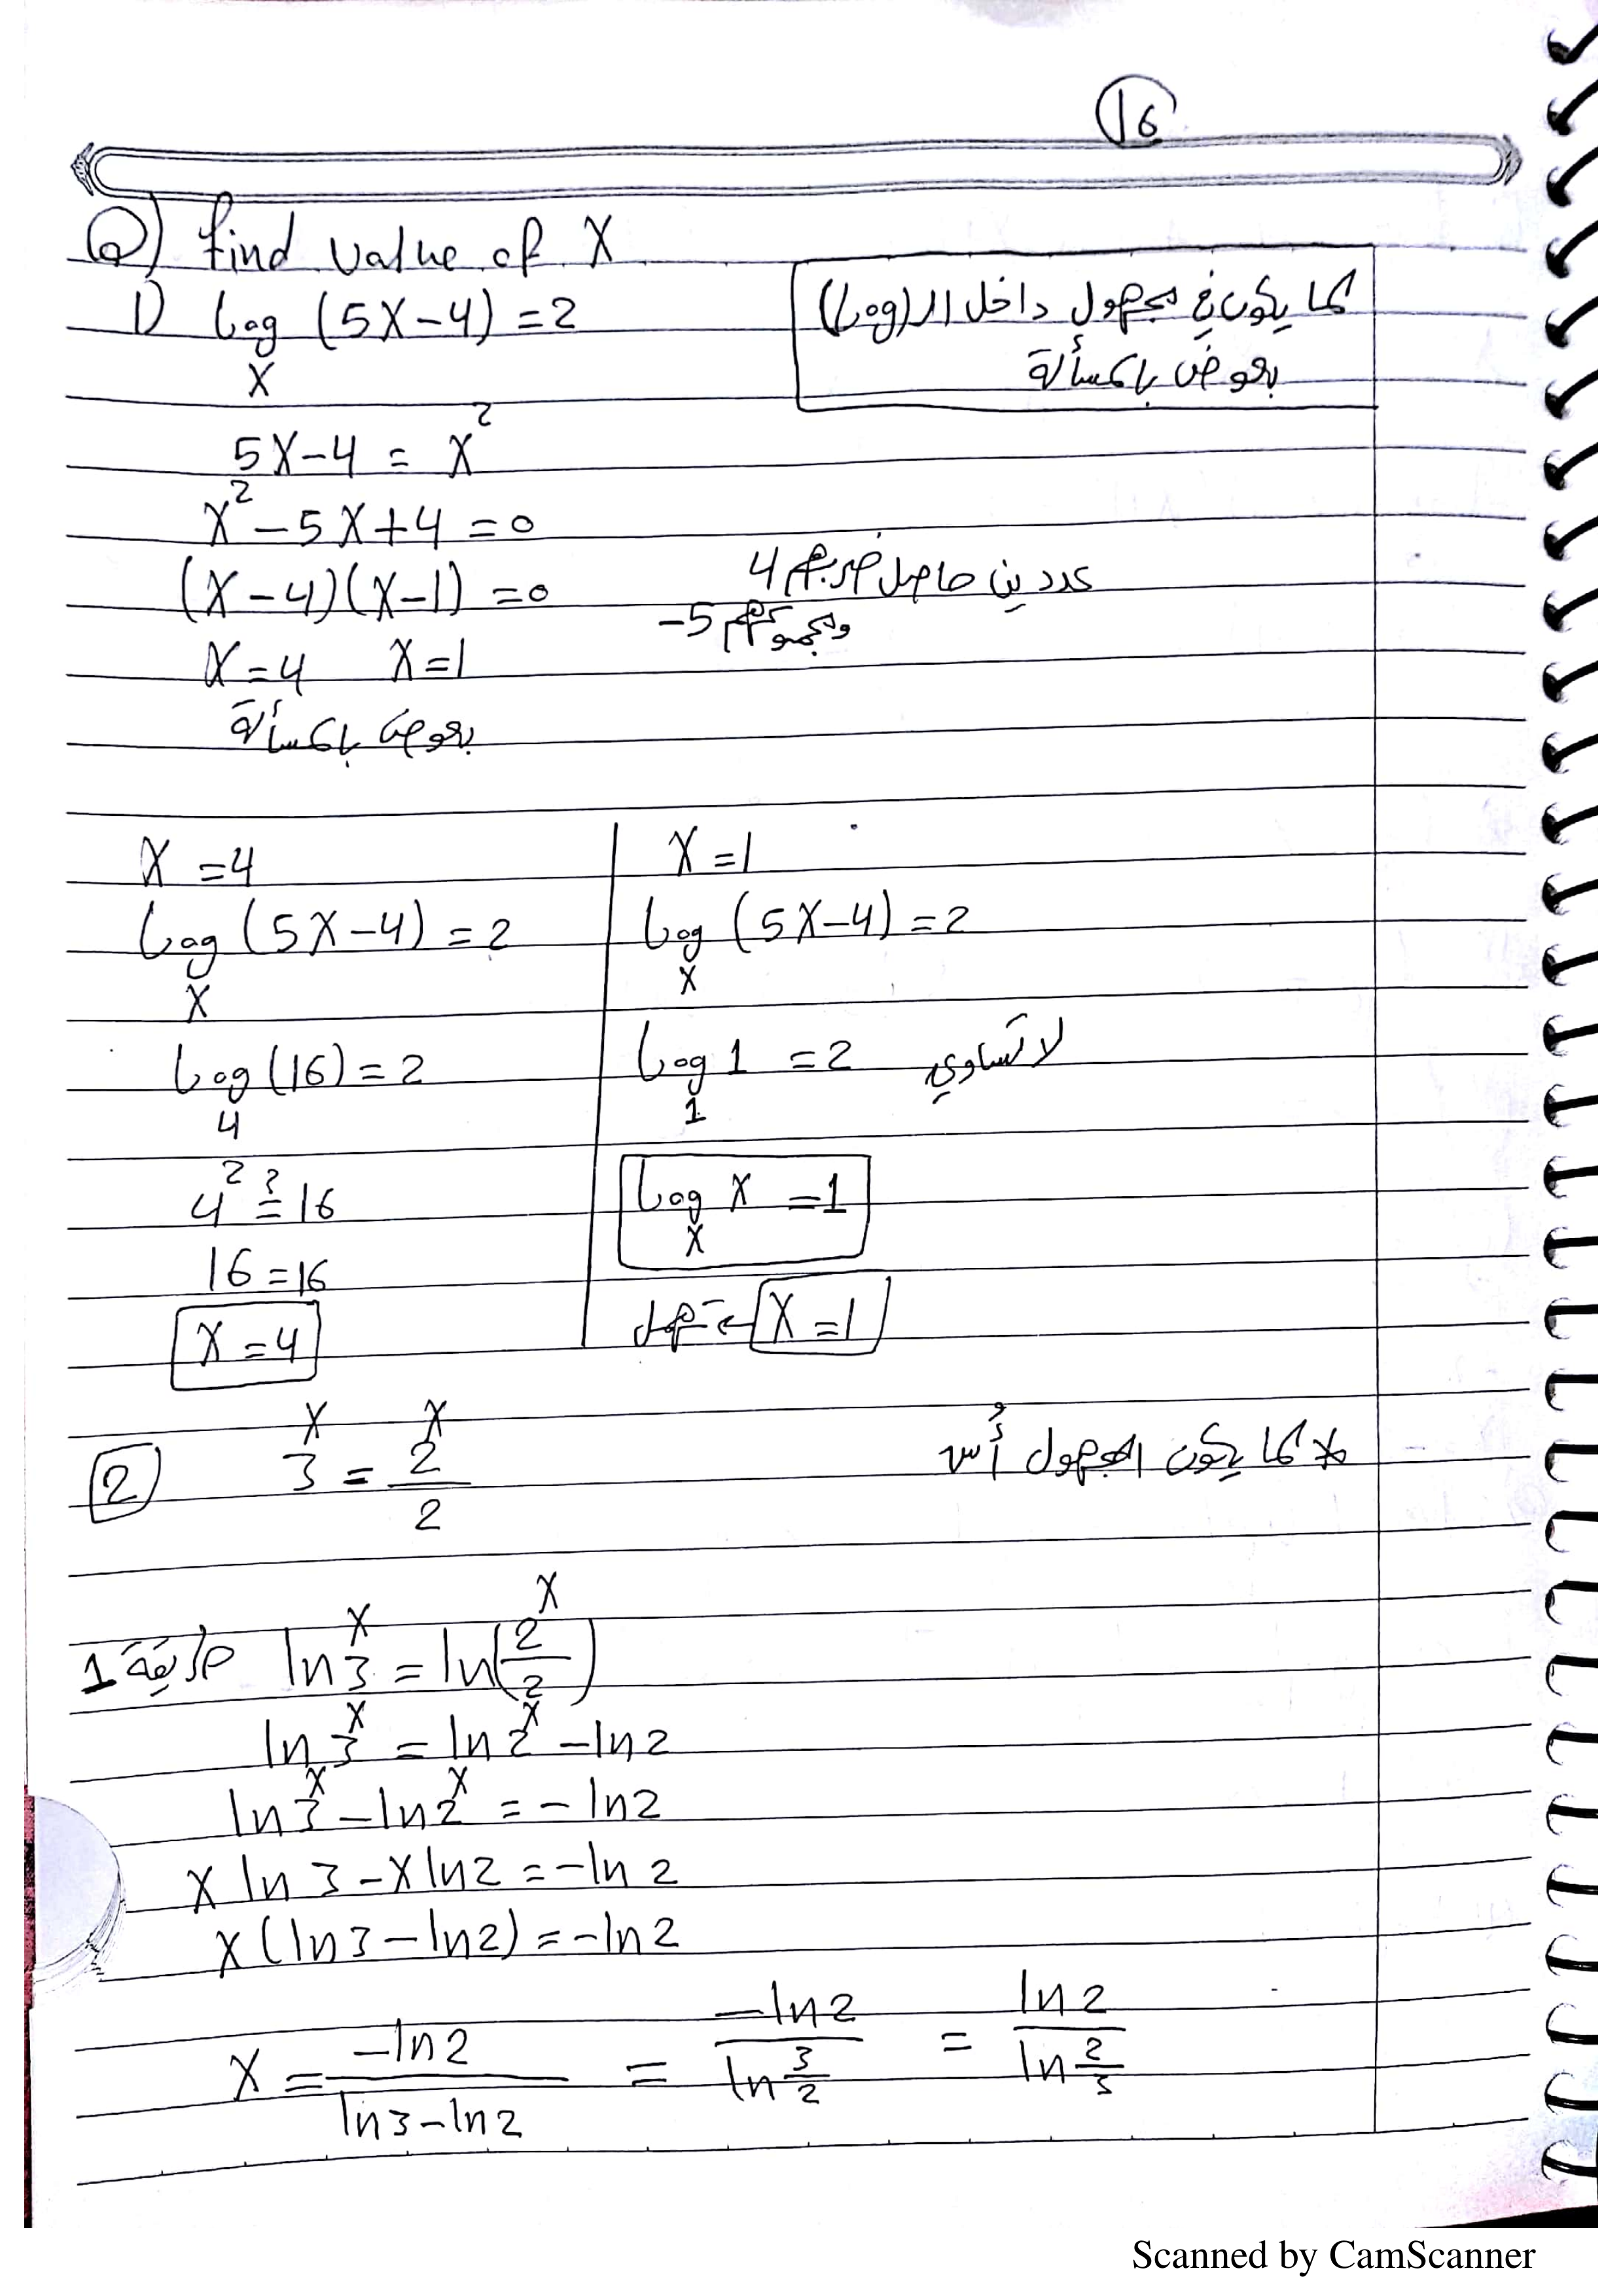 16
Q) find value of X
1) Log_X (5X-4) = 2
لما يكون في مجهول داخل ال(Log)
بعوض بالمسألة
5X-4 = X²
X² -5X+4 =0
(X-4)(X-1) =0
عددين حاصل ضربهم 4
ومجموعهم -5
X=4 X=1
بعوض بالمسألة
X =4
Log_X (5X-4) = 2
Log_4 (16) = 2
4² ≟ 16
16=16
X=4
X=1
Log_X (5X-4) = 2
Log_1 1 = 2 لا تساوي
Log_X X =1
X=1 ← تهمل
2 3^X = 2^X/2
* لما يكون المجهول أُس
طريقة 1 ln 3^X = ln(2^X/2)
ln 3^X = ln 2^X - ln 2
ln 3^X - ln 2^X = - ln 2
X ln 3 - X ln 2 = - ln 2
X(ln 3 - ln 2) = - ln 2
X = -ln 2/(ln 3 - ln 2) = -ln 2/(ln 3/2) = ln 2/(ln 2/3)
Scanned by CamScanner